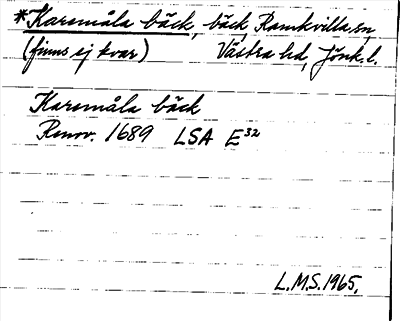 *Karsmåla bäck, bäck, Ramkvilla sn,
(finns ej kvar) Västra hd, Jönk. l.
Karsmåla bäck
Renov. 1689 LSA E³²
L.M.S. 1965.